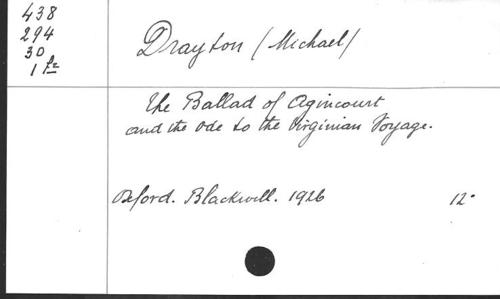 438
294
30
Drayton (Michael)
The Ballad of Agincourt
and the Ode to the Virginian Voyage.
Oxford. Blackwell. 1926 12°